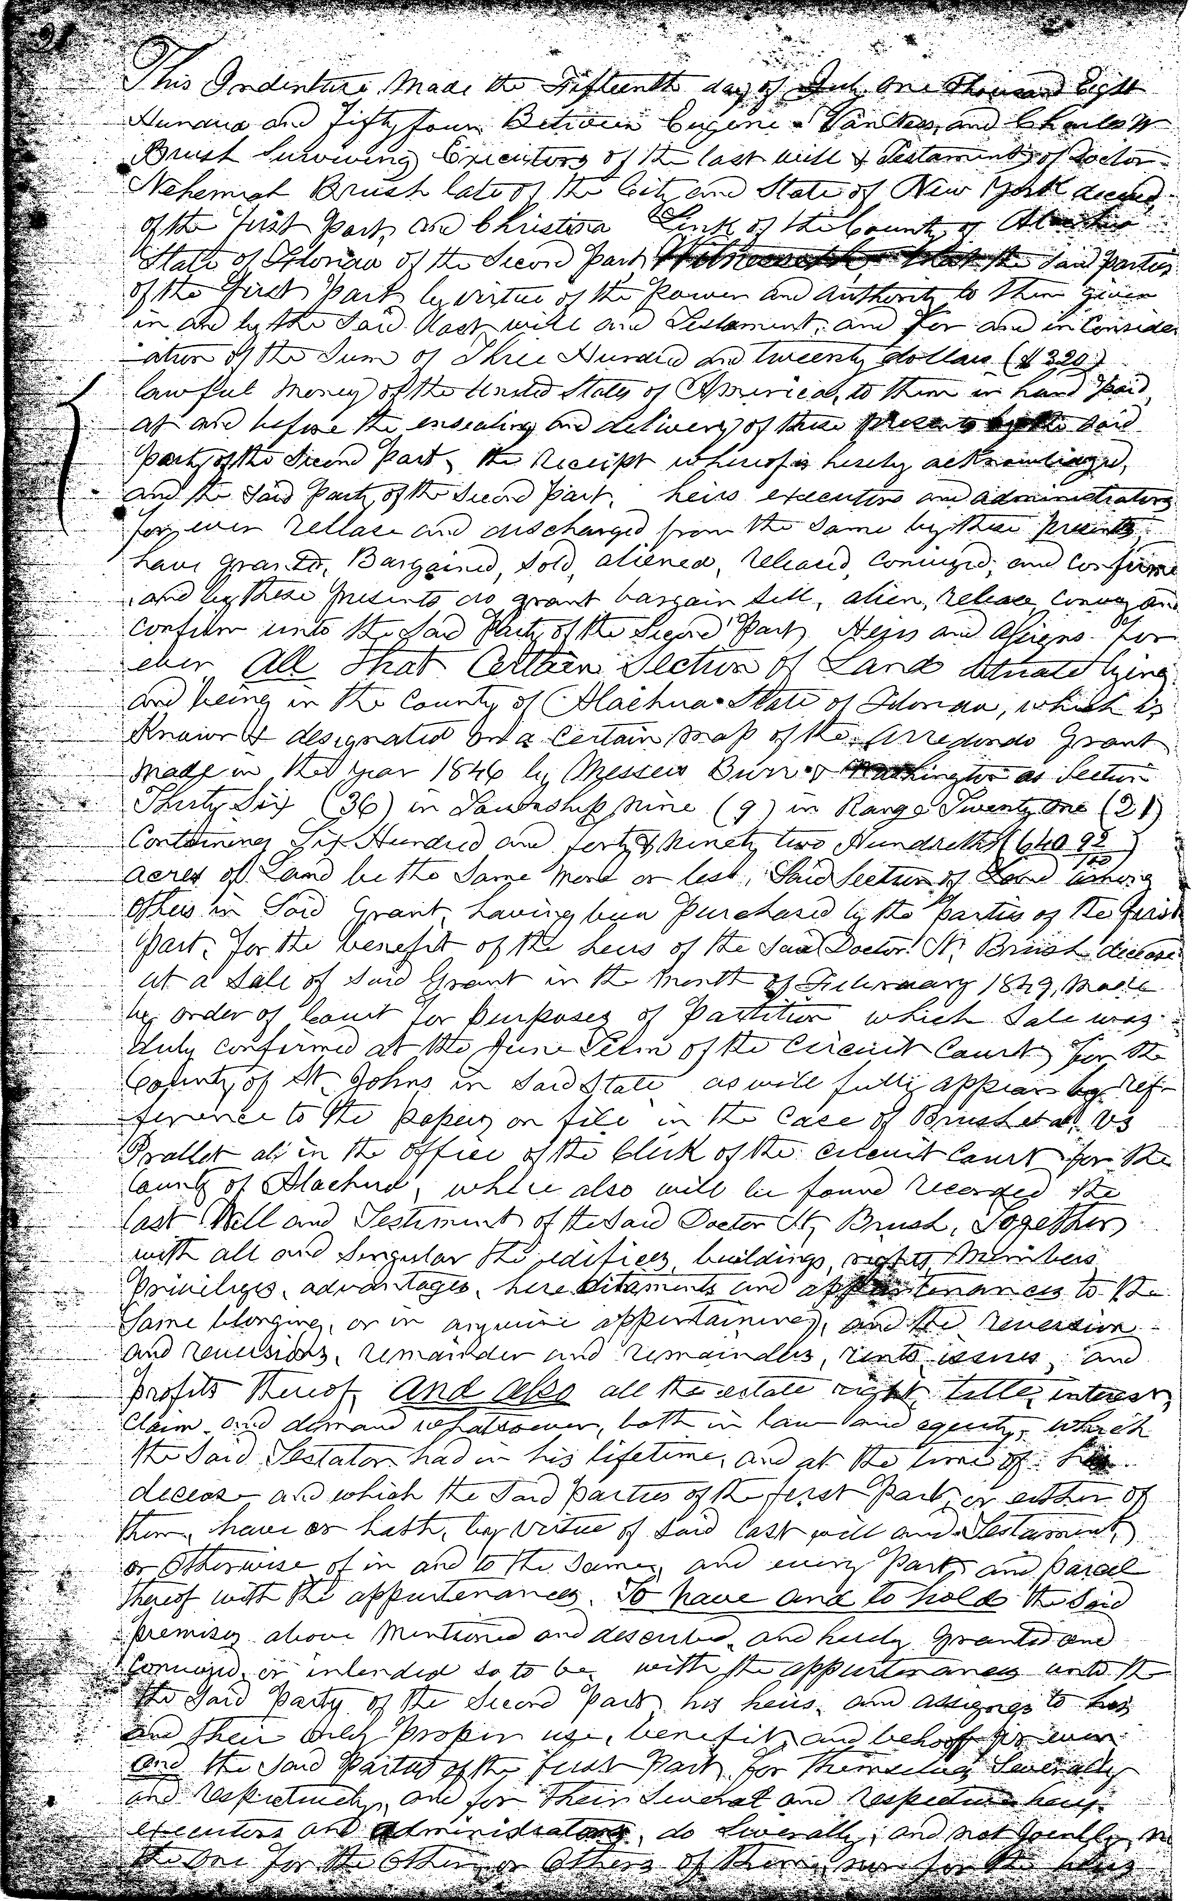 This Indenture, Made the Fifteenth day of July One Thousand Eight
Hundred and Fifty four Between Eugene Van Ness, and Charles W
Brush Surviving Executors of the last will & Testament of Doctor
Nehemiah Brush late of the City and State of New York deceased,
of the first Part, and Christian of the County of Alachua
State of Florida of the Second Part Witnesseth that the said parties
of the first Part, by virtue of the Power and authority to them given
in and by the said last will and Testament, and for and in consider
ation of the sum of Three Hundred and twenty dollars ($320)
lawful money of the United States of America, to them in hand paid,
at and before the ensealing and delivery of these presents by the said
Party of the Second Part, the receipt whereof is hereby acknowledged,
and the said Party of the Second part, heirs executors and administrators
for ever release and discharged from the same by these presents,
have granted, Bargained, sold, aliened, released, conveyed, and confirme
and by these presents do grant bargain sell, alien, release convey and
confirm unto the said Party of the Second Part Heirs and assigns for
ever All that Certain Section of Land situate lying
and being in the County of Alachua State of Florida, which is
Known & designated on a certain map of the Arredondo Grant
made in the year 1846 by Messers Burr & Washington as Section
Thirty Six (36) in Township Nine (9) in Range Twenty One (21)
Containing Six Hundred and forty & Ninety two Hundredths (640 92/100)
acres of Land be the same more or less, Said Section of Land among
others in said Grant, having been purchased by the parties of the first
Part, for the benefit of the heirs of the said Doctor N. Brush decease
at a Sale of said Grant in the month of February 1849, made
by order of Court for purposes of Partition which Sale was
duly confirmed at the June Term of the Circuit Court, for the
County of St. Johns in said State as will fully appear by ref-
ference to the papers on file in the case of Brush et al. vs
al in the office of the Clerk of the circuit Court for the
County of Alachua, where also will be found recorded the
last Will and Testiment of the said Doctor N, Brush, Together
with all and singular the edifices, buildings, rights, Members
Privileges, advantages, hereditaments and appurtenances to the
Same belonging, or in anywise appertaining, and the reversion
and reversions, remainder and remainders, rents issues, and
profits thereof, and also all the estate right, title, interest,
claim and demand whatsoever, both in law and equity, which
the said Testator had in his lifetime, and at the time of his
decease and which the said parties of the first Part, or either of
them, have or hath, by virtue of said last will and Testament,
or Otherwise of in and to the same, and every Part, and parcel
thereof with the appurtenances. To have and to hold the said
premises above mentioned and described, and hereby granted and
conveyed, or intended so to be with the appurtenances unto the
the said Party of the Second Part, his heirs, and assignes to his
and their only proper use, benefit, and behoof for ever
and the said Parties of the first Part, for themselves Severally
and respectively, and for their several and respective heirs
executors and administrators, do severally, and not jointly, no
the one for the other, or others of them, nor for the heirs